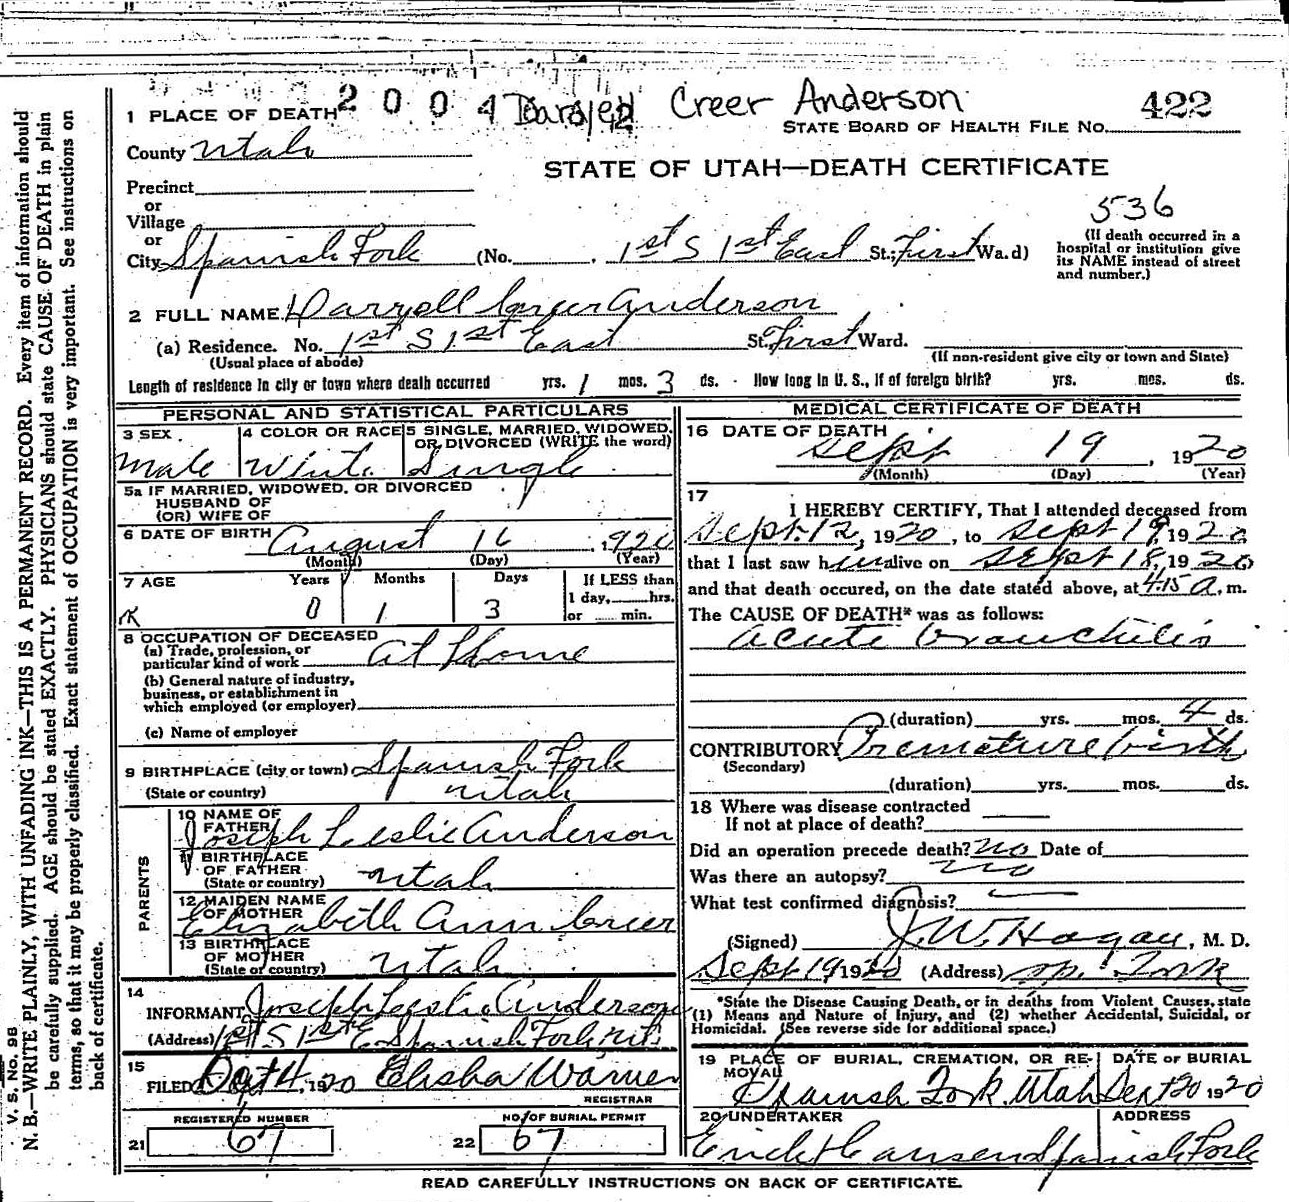 2 0 0 4 Creer Anderson 422
1 PLACE OF DEATH
STATE BOARD OF HEALTH FILE No.
County Utah
STATE OF UTAH—DEATH CERTIFICATE
Precinct
or
Village
or
City Spanish Fork (No. 1st S 1st East St.; First Wa.d)
536
(If death occurred in a
hospital or institution give
its NAME instead of street
and number.)
2 FULL NAME Darrell Creer Anderson
(a) Residence. No. 1st S 1st East St. First Ward.
(Usual place of abode) (If non-resident give city or town and State)
Length of residence in city or town where death occurred yrs. 1 mos. 3 ds. How long in U. S., if of foreign birth? yrs. mos. ds.
PERSONAL AND STATISTICAL PARTICULARS
3 SEX 4 COLOR OR RACE 5 SINGLE, MARRIED, WIDOWED,
OR DIVORCED (WRITE the word)
Male White Single
5a IF MARRIED, WIDOWED, OR DIVORCED
HUSBAND OF
(OR) WIFE OF
6 DATE OF BIRTH August 16, 1920
(Month) (Day) (Year)
7 AGE Years Months Days If LESS than
1 day, hrs.
0 1 3 or min.
8 OCCUPATION OF DECEASED
(a) Trade, profession, or
particular kind of work at Home
(b) General nature of industry,
business, or establishment in
which employed (or employer)
(c) Name of employer
9 BIRTHPLACE (city or town) Spanish Fork
(State or country) Utah
PARENTS
10 NAME OF
FATHER Joseph Leslie Anderson
11 BIRTHPLACE
OF FATHER
(State or country) Utah
12 MAIDEN NAME
OF MOTHER Elizabeth Ann Creer
13 BIRTHPLACE
OF MOTHER
(State or country) Utah
14
INFORMANT Joseph Leslie Anderson
(Address) 1st S 1st E Spanish Fork Ut.
15
FILED Oct 4, 1920 Elisha Warner
REGISTRAR
REGISTERED NUMBER NO. OF BURIAL PERMIT
21 67 22 67
MEDICAL CERTIFICATE OF DEATH
16 DATE OF DEATH
Sept 19, 1920
(Month) (Day) (Year)
17
I HEREBY CERTIFY, That I attended deceased from
Sept. 12, 1920, to Sept 19, 1920
that I last saw him alive on Sept 18, 1920
and that death occured, on the date stated above, at 4:15 a.m.
The CAUSE OF DEATH* was as follows:
acute bronchitis
(duration) yrs. mos. 4 ds.
CONTRIBUTORY Premature birth
(Secondary)
(duration) yrs. mos. ds.
18 Where was disease contracted
If not at place of death?
Did an operation precede death? no Date of
Was there an autopsy? no
What test confirmed diagnosis?
(Signed) J. W. Hagan, M. D.
Sept 19 1920 (Address) Sp. Fork
*State the Disease Causing Death, or in deaths from Violent Causes, state
(1) Means and Nature of Injury, and (2) whether Accidental, Suicidal, or
Homicidal. (See reverse side for additional space.)
19 PLACE OF BURIAL, CREMATION, OR RE- DATE OF BURIAL
MOVAL
Spanish Fork Utah Sept 20 1920
20 UNDERTAKER ADDRESS
Hansen Spanish Fork
READ CAREFULLY INSTRUCTIONS ON BACK OF CERTIFICATE.
V. S. No. 98
N. B.—WRITE PLAINLY, WITH UNFADING INK—THIS IS A PERMANENT RECORD. Every item of information should
be carefully supplied. AGE should be stated EXACTLY. PHYSICIANS should state CAUSE OF DEATH in plain
terms, so that it may be properly classified. Exact statement of OCCUPATION is very important. See instructions on
back of certificate.